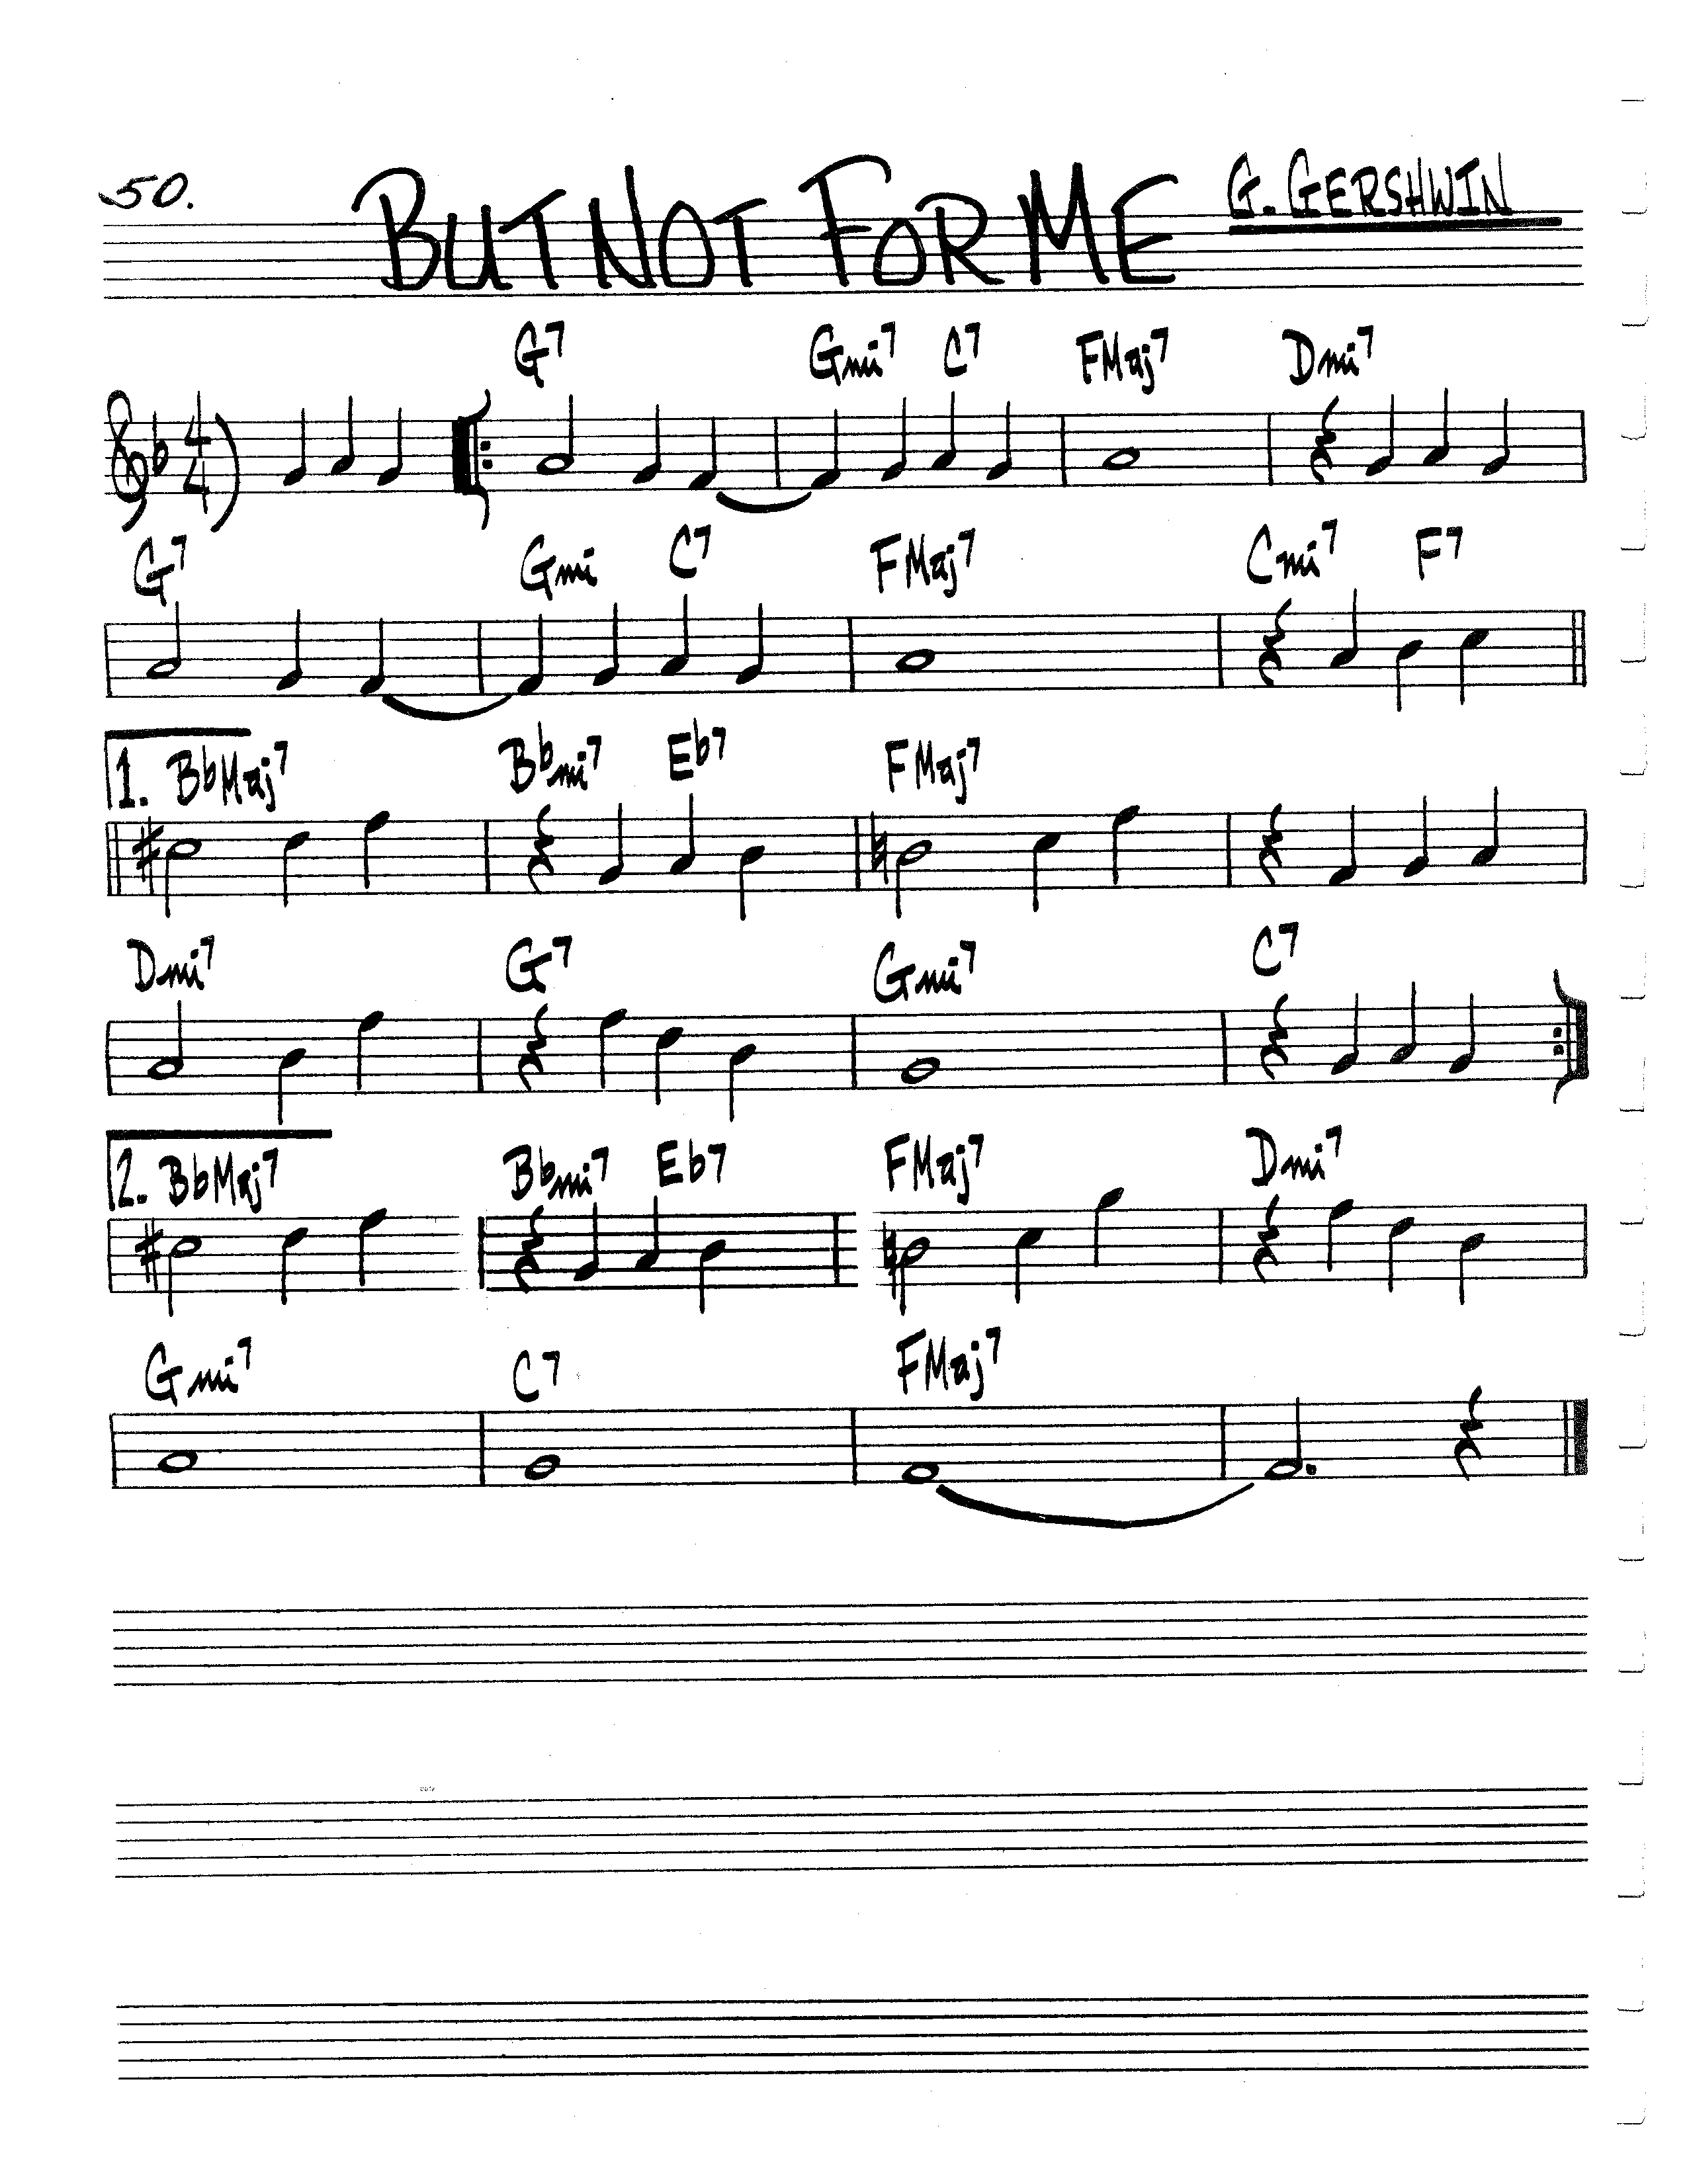 50. BUT NOT FOR ME G. GERSHWIN
G7 Gmi7 C7 FMaj7 Dmi7
4
4
G7 Gmi C7 FMaj7 Cmi7 F7
1. BbMaj7 Bbmi7 Eb7 FMaj7
Dmi7 G7 Gmi7 C7
2. BbMaj7 Bbmi7 Eb7 FMaj7 Dmi7
Gmi7 C7 FMaj7